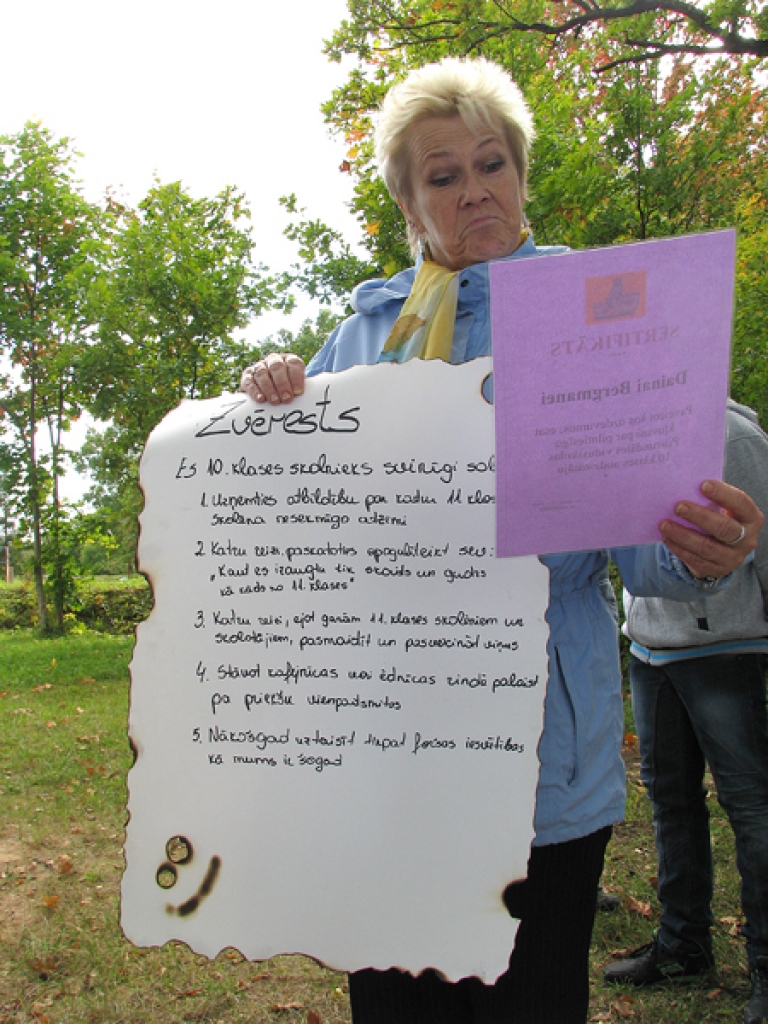 Zvērests
Es 10. klases skolnieks svinīgi sol
1. Uzņemties atbildību par katru 11. klas
skolēna nesekmīgo atzīmi
2. Katru reizi, paskatoties spogulī teikt sev:
"Kaut es izaugtu tik skaists un gudrs
kā kāds no 11. klases"
3. Katru reizi, ejot garām 11. klases skolēniem un
skolotājiem, pasmaidīt un pasveicināt viņus
4. Stāvot kafejnīcas vai ēdnīcas rindā palaist
pa priekšu vienpadsmitos
5. Nākošgad uztaisīt tikpat foršas iesvētības
kā mums ir šogad
SERTIFIKĀTS
Dainai Bergmanei
Paveicot šos uzdevumus, esat
kļuvusi par pilntiesīgu
vidusskolas
10.klases audzinātāju